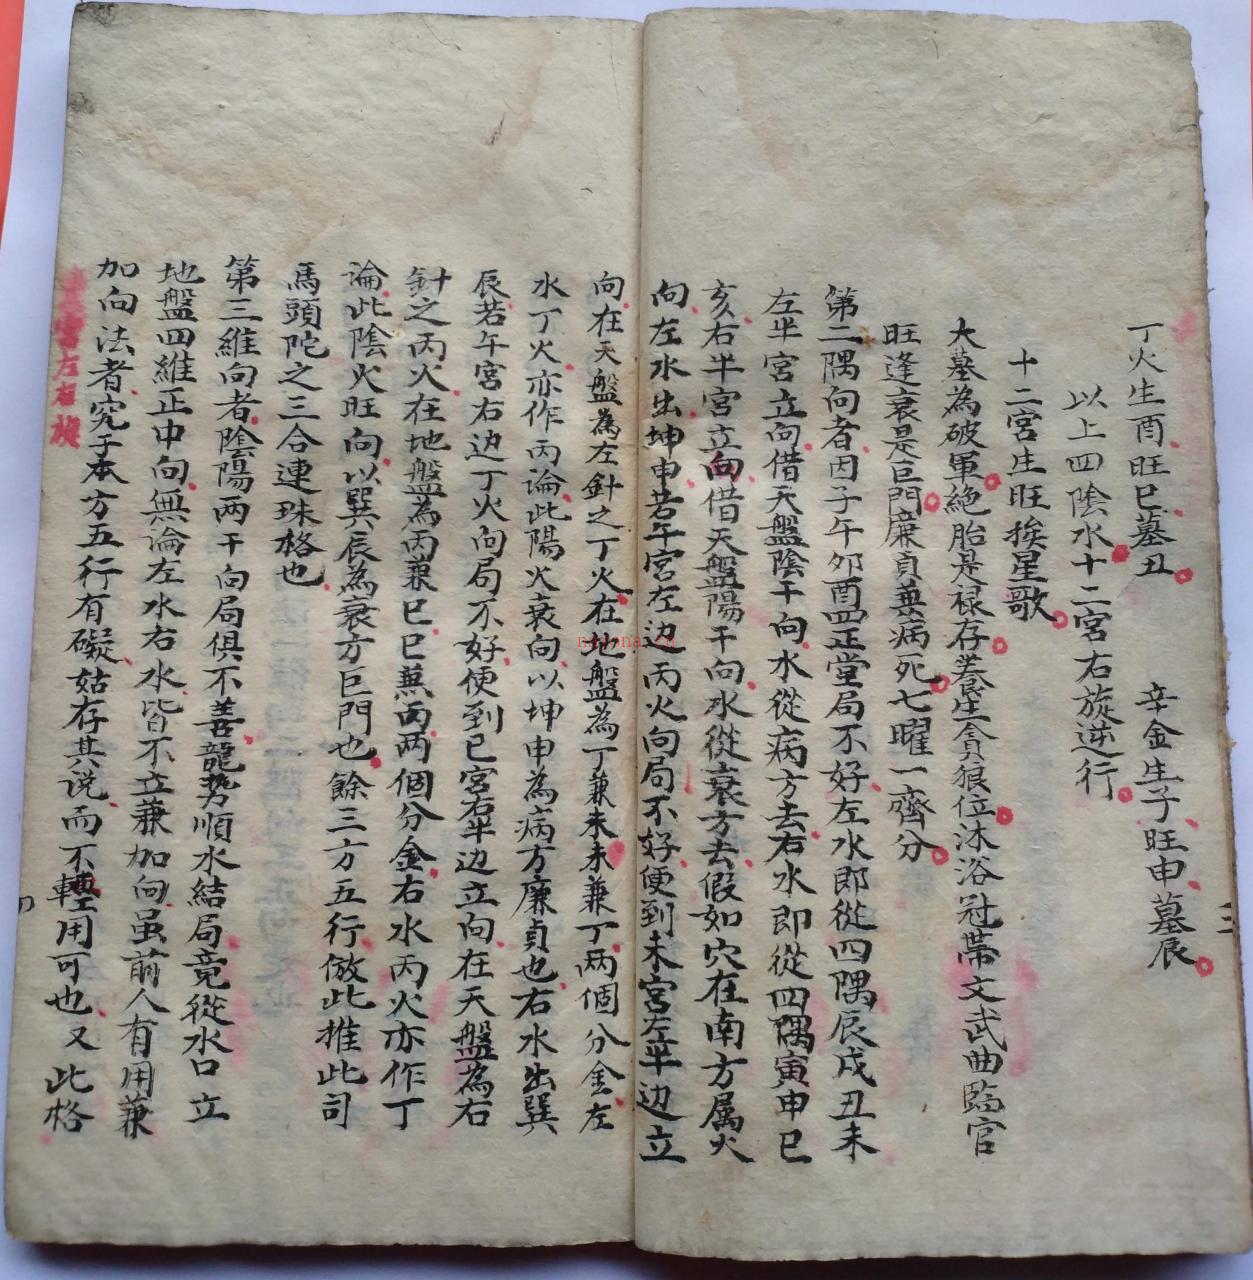 丁火生酉旺巳墓丑 辛金生子旺申墓辰
以上四陰水十二宮右旋逆行
十二宮生旺挨星歌
大墓為破軍絶胎是禄存養生貪狼位沐浴冠帶文武曲臨官
旺逢衰是巨門廉貞兼病死七曜一齊分
第二隅向者因子午卯酉四正堂局不好左水即從四隅辰戌丑未
左半宮立向借天盤陰干向水從病方去右水即從四隅寅申巳
亥右半宮立向借天盤陽干向水從衰方去假如穴在南方属火
向左水出坤申若午宮左边丙火向局不好便到未宮左半边立
向在天盤為左針之丁火在地盤為丁兼未未兼丁两個分金左
水丁火亦作丙論此陽火衰向以坤申為病方廉貞也右水出巽
辰若午宮右边丁火向局不好便到巳宮右半边立向在天盤為右
針之丙火在地盤為丙兼巳巳兼丙两個分金右水丙火亦作丁
論此陰火旺向以巽辰為衰方巨門也餘三方五行倣此推此司
馬頭陀之三合連珠格也
第三維向者陰陽两干向局俱不善龍勢順水結局竟從水口立
地盤四維正中向無論左水右水皆不立兼加向虽前人有用兼
加向法者究于本方五行有礙姑存其说而不輕用可也又此格
宮左右旋